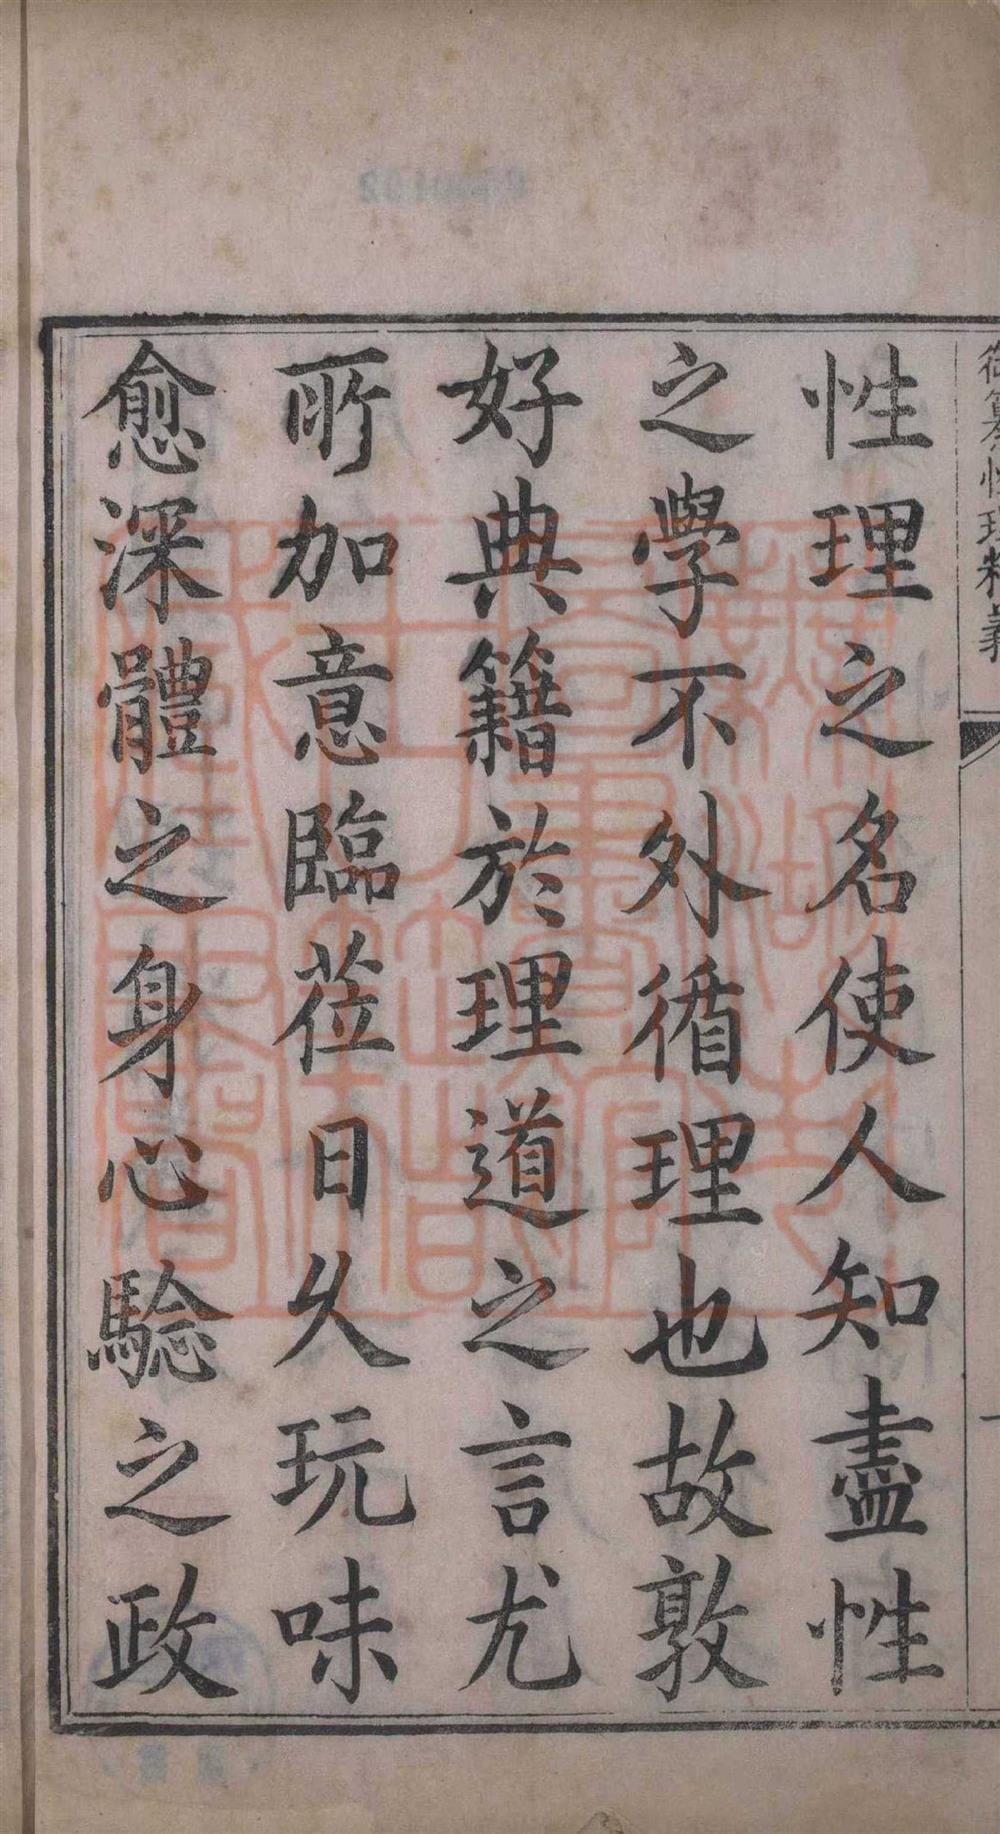 性理之名使人知盡性
之學不外循理也故敦
好典籍於理道之言尤
所加意臨莅日久玩味
愈深體之身心驗之政